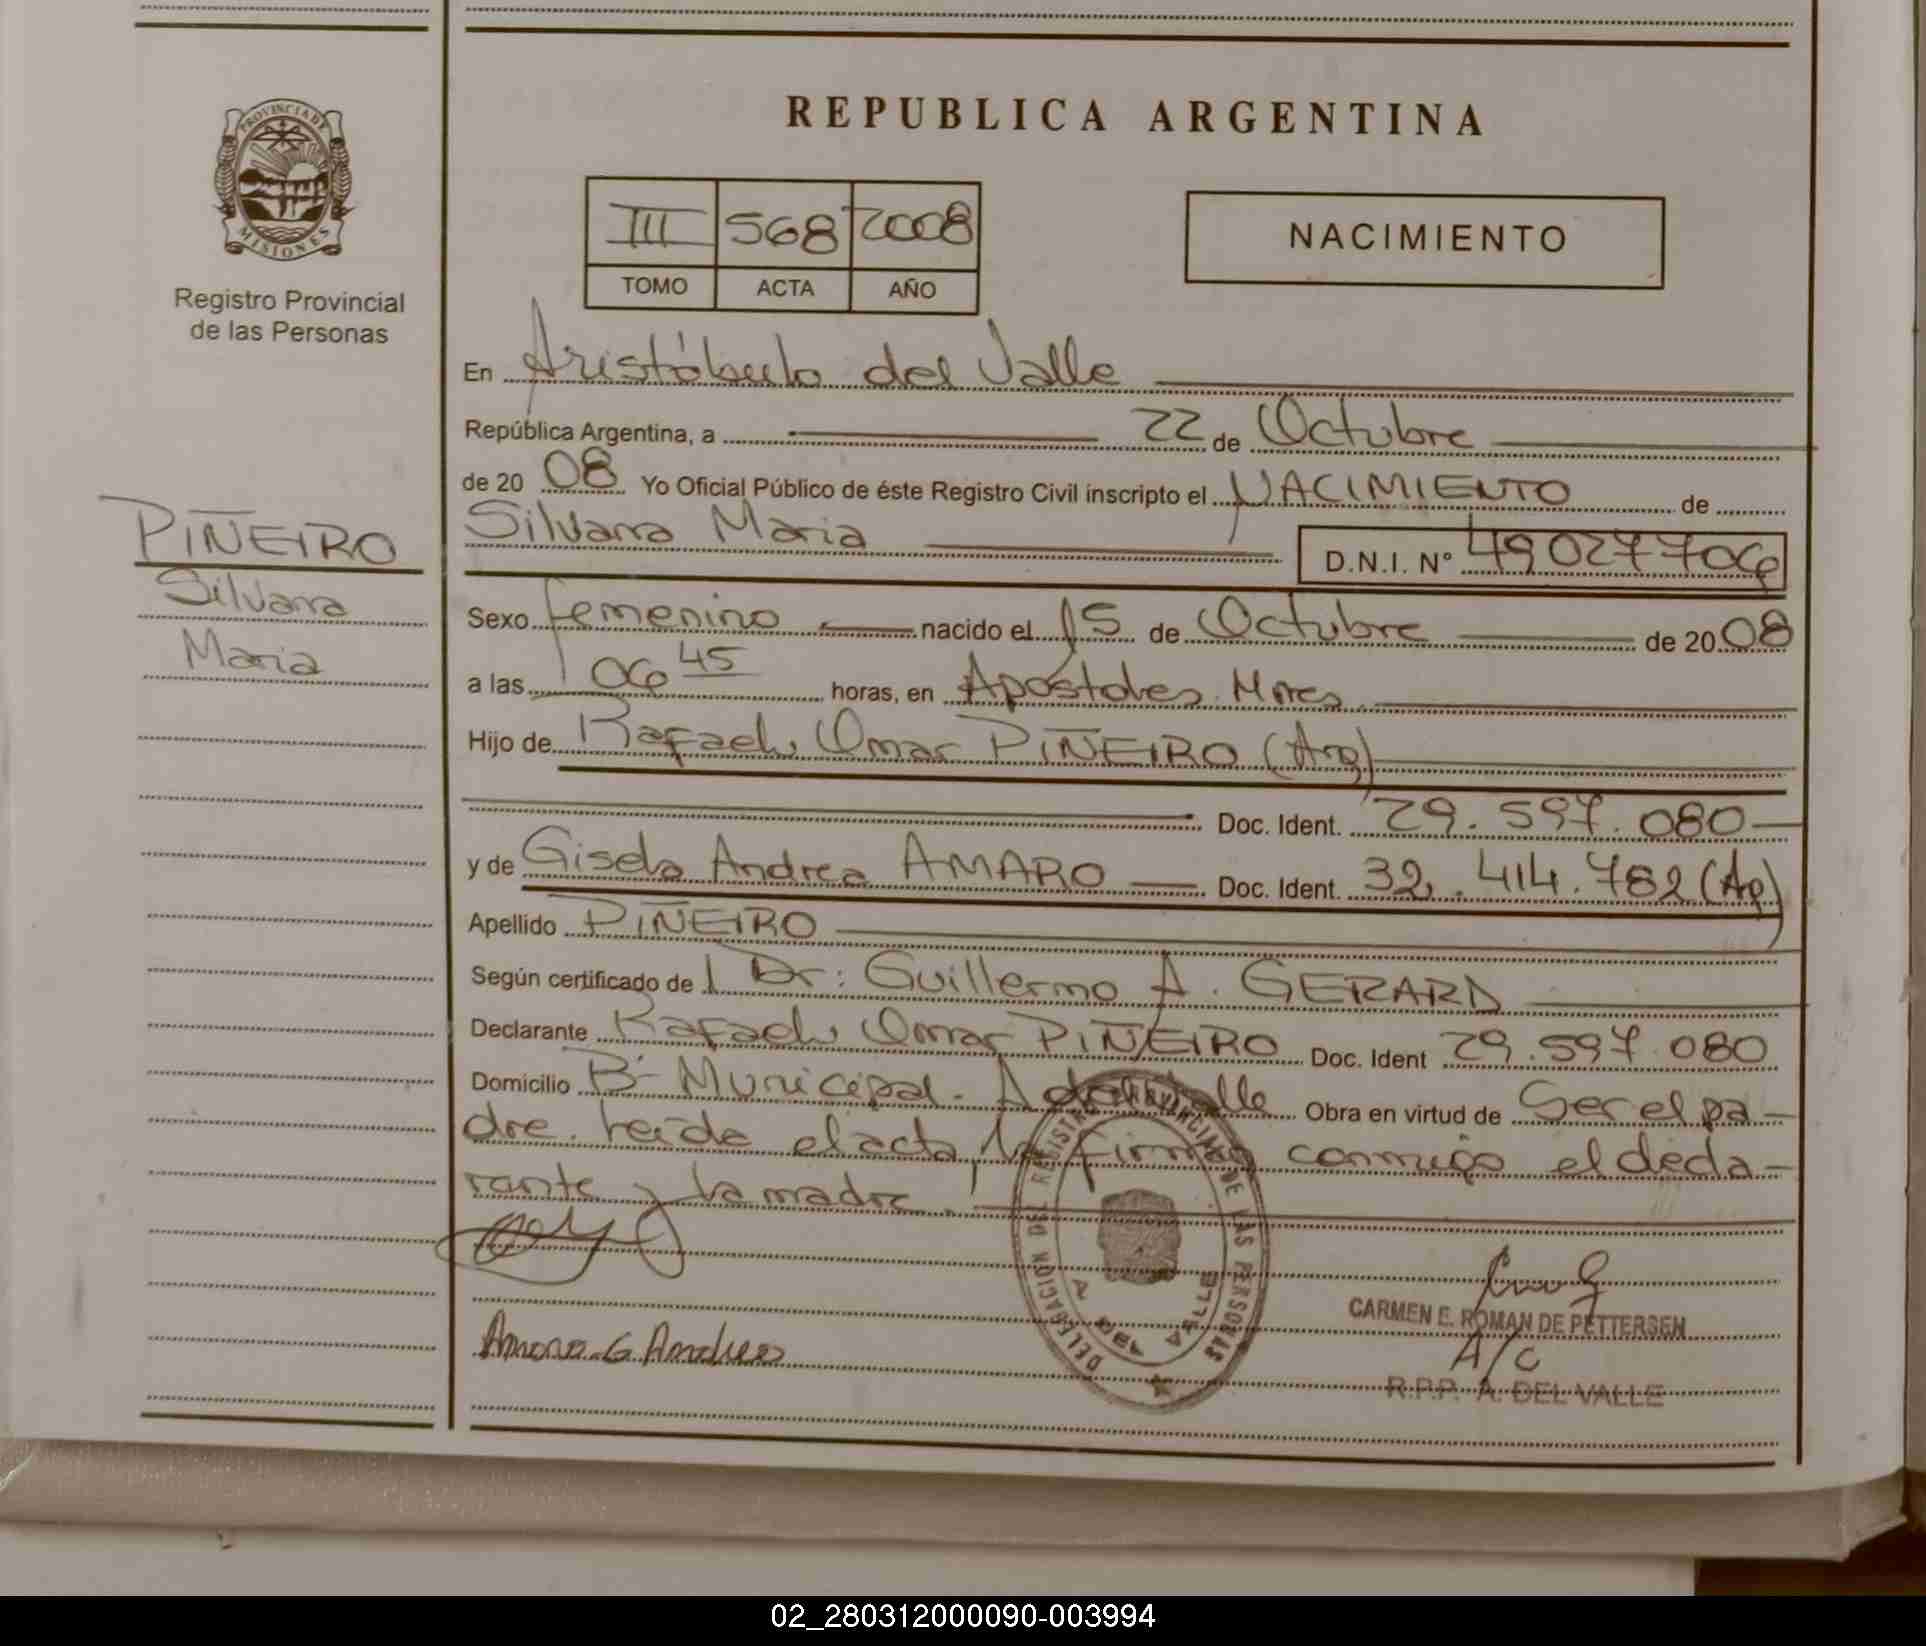 REPUBLICA ARGENTINA
PROVINCIA DE
MISIONES
Registro Provincial
de las Personas
III 568 2008
TOMO ACTA AÑO
NACIMIENTO
En Aristóbulo del Valle
República Argentina, a 22 de Octubre
de 20 08 Yo Oficial Público de éste Registro Civil inscripto el NACIMIENTO de
Silvana Maria D.N.I. Nº 49027706
PIÑEIRO
Silvana
Maria
Sexo femenino nacido el 15 de Octubre de 20 08
a las 06 45 horas, en Apóstoles. Mnes.
Hijo de Rafael Omar PIÑEIRO (Arg)
Doc. Ident. 29.597.080
y de Gisela Andrea AMARO Doc. Ident. 32.414.782 (Ag)
Apellido PIÑEIRO
Según certificado de Dr: Guillermo A. GERARD
Declarante Rafael Omar PIÑEIRO Doc. Ident 29.597.080
Domicilio Bº Municipal. A del Valle Obra en virtud de Ser el pa-
dre. Leida el acta, la firman conmigo el decla-
rante y la madre.
DELEGACION DEL REGISTRO PROVINCIAL DE LAS PERSONAS
A. DEL VALLE
CARMEN E. ROMAN DE PETTERSEN
A/C
R.P.P. A. DEL VALLE
Amaro G Andrea
02_280312000090-003994